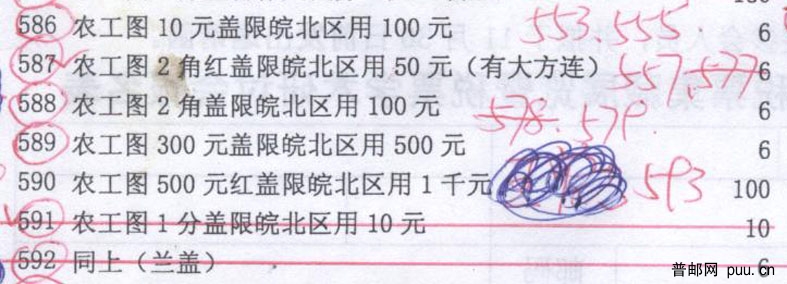 586 农工图 10 元盖限皖北区用 100 元 553.555 6
587 农工图 2 角红盖限皖北区用 50 元（有大方连） 557,577 6
588 农工图 2 角盖限皖北区用 100 元 578.579. 6
589 农工图 300 元盖限皖北区用 500 元 6
590 农工图 500 元红盖限皖北区用 1 千元 593 100
591 农工图 1 分盖限皖北区用 10 元 10
592 同上（兰盖） 6
普邮网 puu.cn